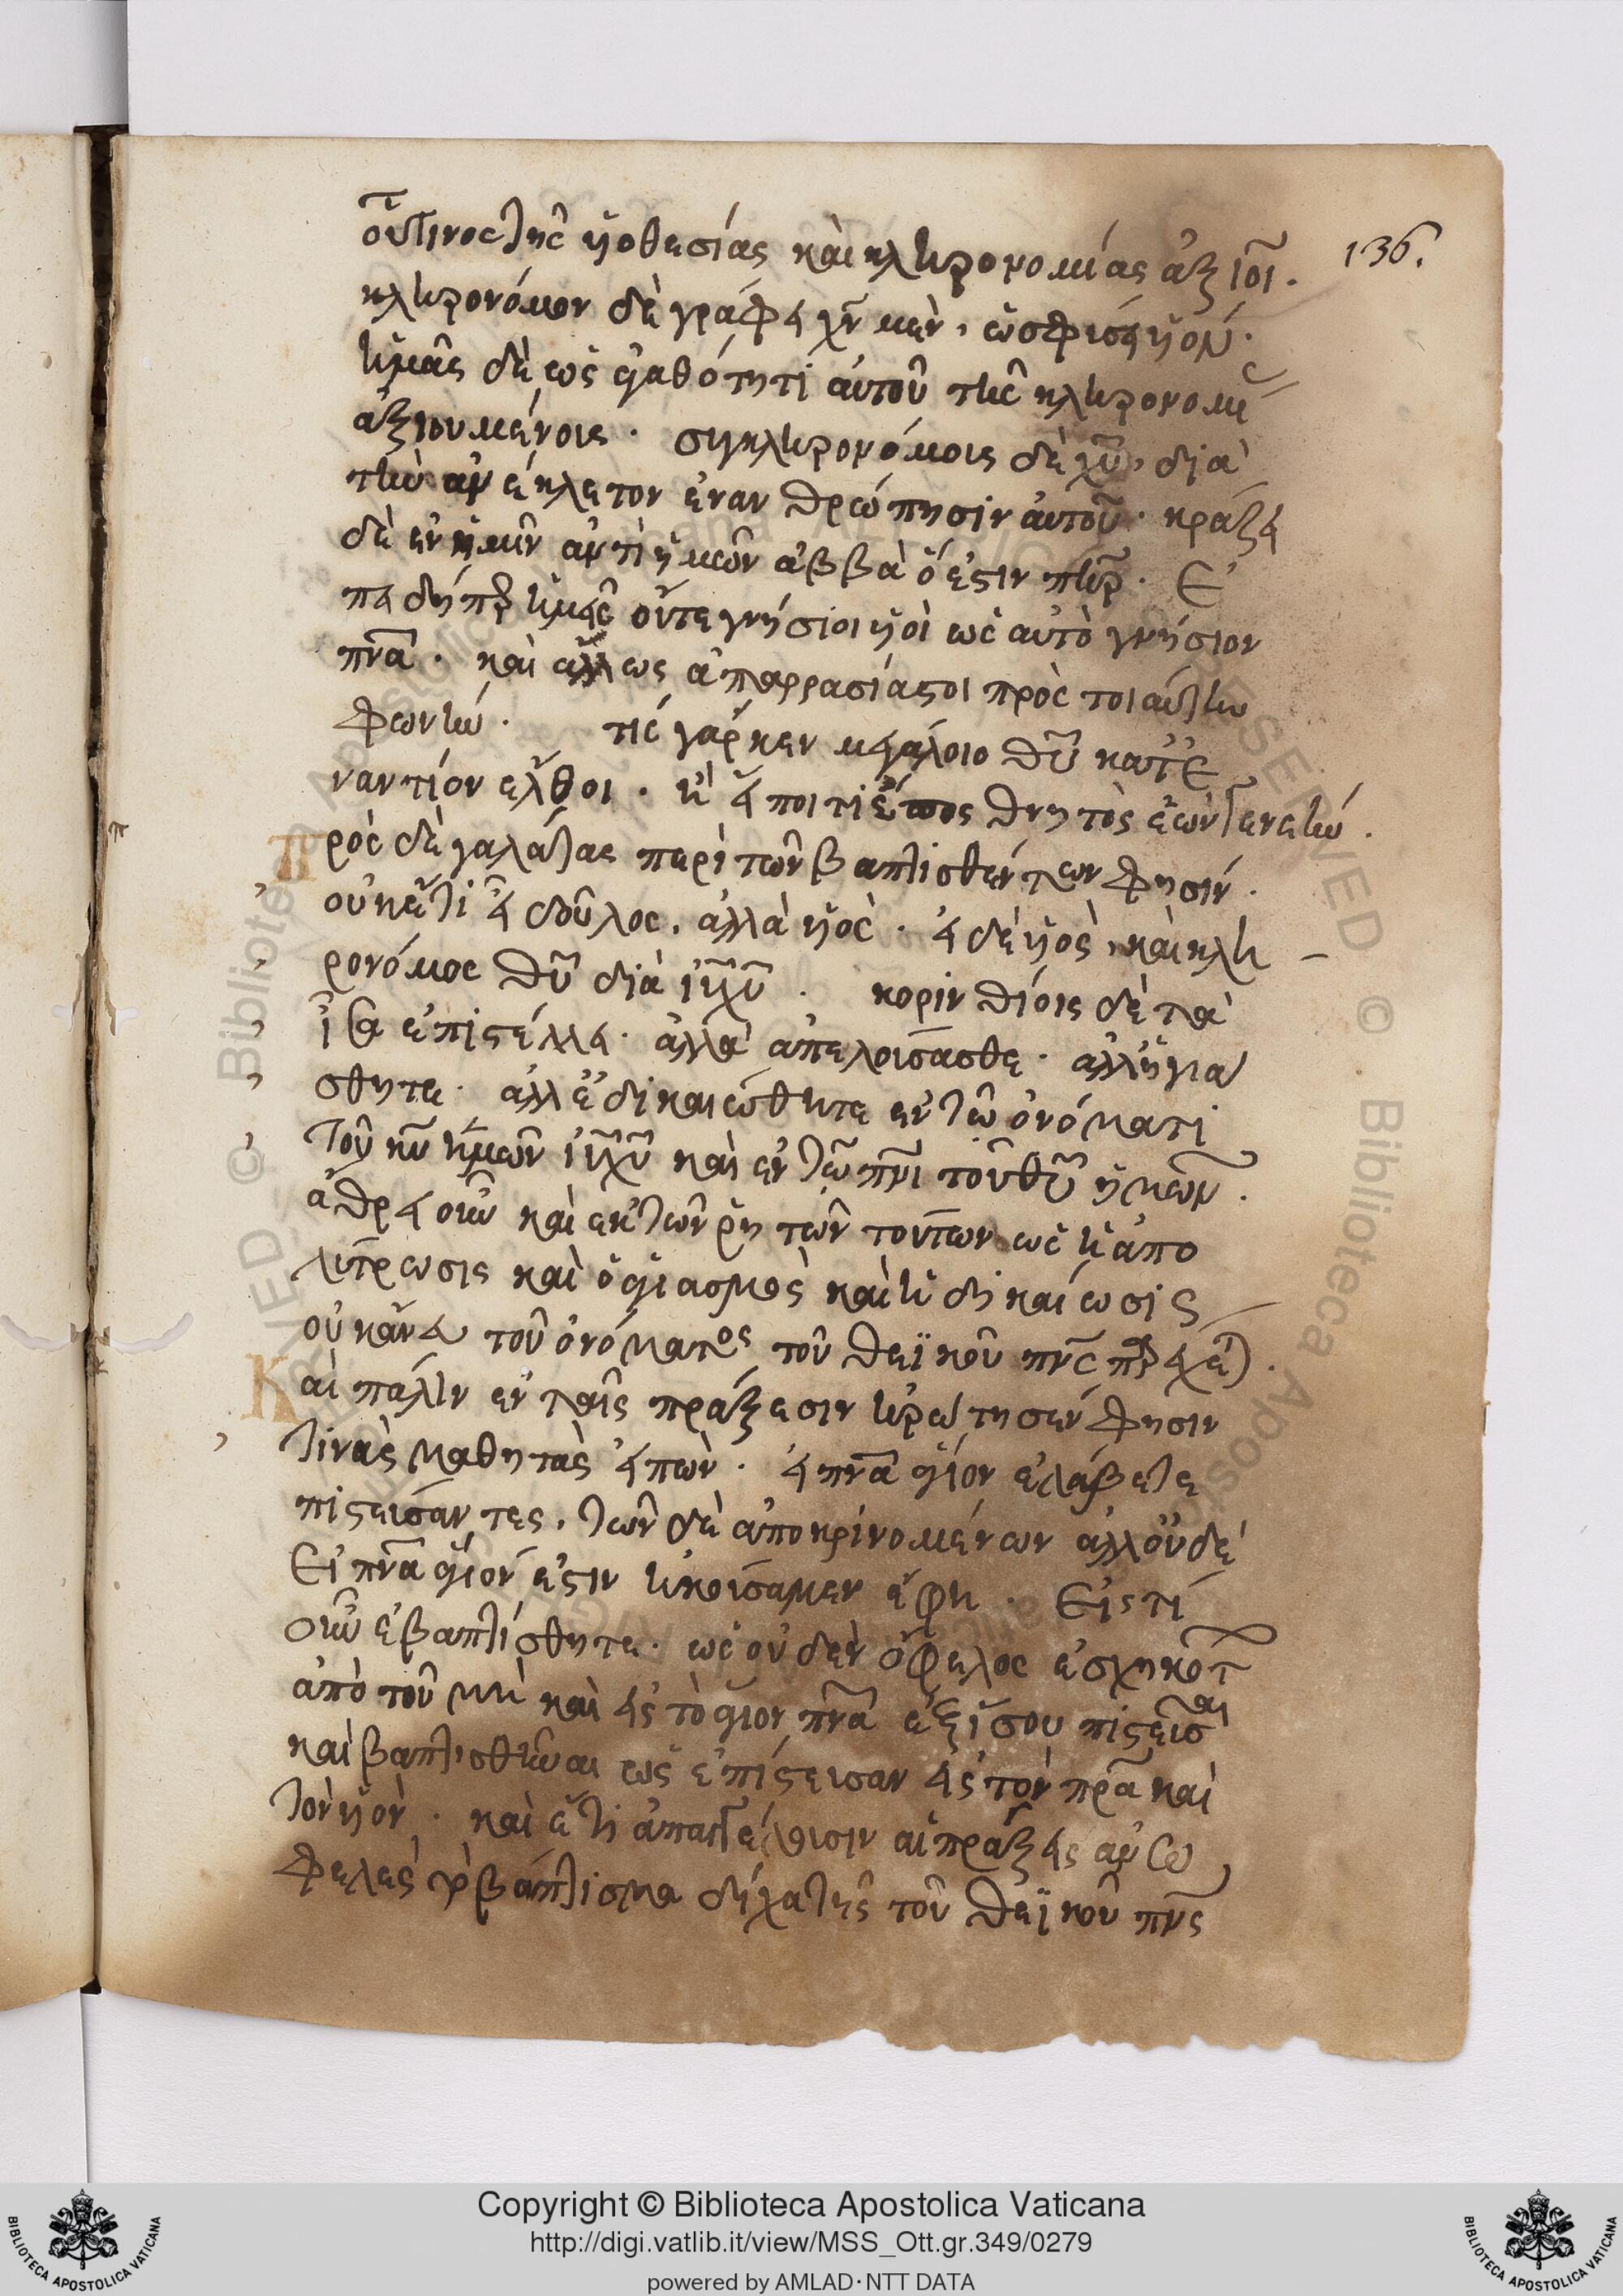 οὕτινος τῆς υἱοθεσίας καὶ κληρονομίας ἀξιοῖ.
136.
κληρονόμον δὲ γράφει χν μὲν, ὡς φύσει υἱόν.
ἡμᾶς δὲ ὡς ἀγαθότητι αὐτοῦ τῆς κληρονομί
ἀξιουμένοις. συγκληρονόμοις δὲ χυ, διὰ
τὴν ἀνέκλειτον ἐνανθρώπησιν αὐτοῦ. κράζει
δὲ ἐν ἡμῖν ἀντὶ ἡμῶν ἀββὰ ὅ ἐστιν πηρ. Ἐ
πειδήπερ ἡμεῖς οὔτε γνήσιοι υἱοὶ ὡς αὐτὸ γνήσιον
πνα. καὶ ἄλλως ἀπαρρασίαστοι πρὸς τοιαύτην
φωνήν. τίς γάρ κεν μεγάλοιο θυ κατε
ναντίον ἔλθοι. ἢ εἴποι τι ἔπος θνητὸς ἐὼν γενεήν.
Πρὸς δὲ γαλάτας περὶ τῶν βαπτισθέντων φησίν.
οὐκέτι εἶ δοῦλος, ἀλλὰ υἱός. εἰ δὲ υἱὸς, καὶ κλη
ρονόμος θυ διὰ ιυ χυ. κορινθίοις δὲ τὰ
ἴσα ἐπιστέλλει. ἀλλὰ ἀπελούσασθε. ἀλλ ἡγιά
σθητε. ἀλλ ἐδικαιώθητε ἐν τῶ ὀνόματι
τοῦ κυ ἡμῶν ιυ χυ καὶ ἐν τῶ πνι τοῦ θυ ἡμῶν.
ἄθρει οὖν καὶ ἐκ τῶν ῥητῶν τούτων ὡς ἡ ἀπο
λύτρωσις καὶ ὁ ἁγιασμὸς καὶ ἡ δικαίωσις
οὐκ ἄνευ τοῦ ὀνόματος τοῦ θεϊκοῦ πνς
Καὶ πάλιν ἐν ταῖς πράξεσιν ἠρώτησέν φησιν
τινὰς μαθητὰς εἰπών. εἰ πνα ἅγιον ἐλάβετε
πιστεύσαντες. τῶν δὲ ἀποκρινομένων ἀλλ οὐδὲ
Εἰ πνα ἅγιόν ἐστιν ἠκούσαμεν ἔφη. Εἰς τί
οὖν ἐβαπτίσθητε. ὡς οὐδὲν ὄφελος ἐσχηκότ
ἀπὸ τοῦ μὴ καὶ εἰς τὸ ἅγιον πνα ἐξίσου πιστεῦσαι
καὶ βαπτισθῆναι ὡς ἐπίστευσαν εἰς τὸν πρα καὶ
τὸν υἱόν. καὶ ἔτι ἀπαγγέλουσιν αἱ πράξεις ἀνω
φελὲς τὸ βάπτισμα δίχα τῆς τοῦ θεϊκοῦ πνς
Copyright © Biblioteca Apostolica Vaticana
http://digi.vatlib.it/view/MSS_Ott.gr.349/0279
powered by AMLAD·NTT DATA
BIBLIOTECA APOSTOLICA VATICANA
BIBLIOTECA APOSTOLICA VATICANA